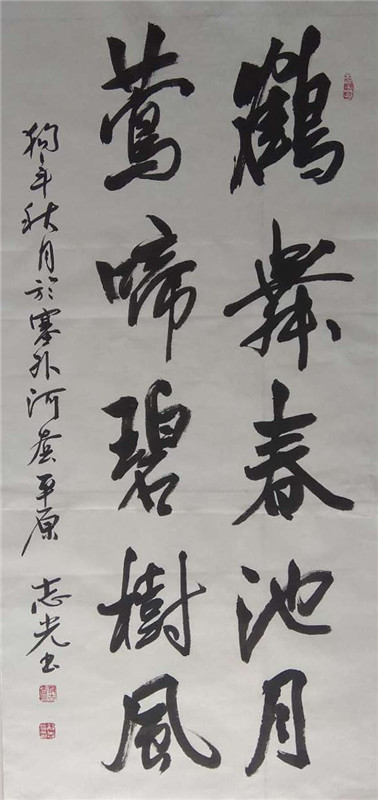 鶴舞春池月
莺啼碧樹風
狗年秋月於塞外河套平原
志光书